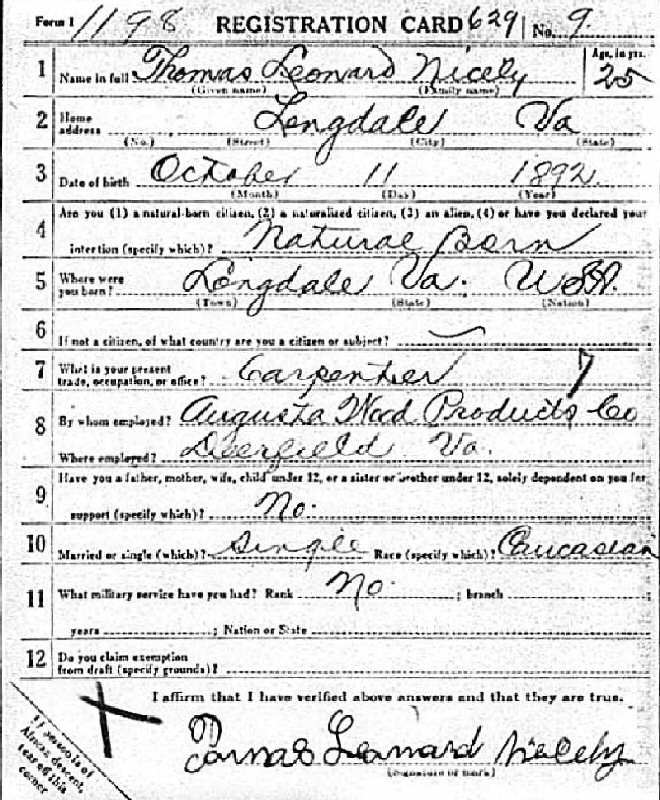 Form 1 1198 REGISTRATION CARD 629 No. 9.
1 Name in full Thomas Leonard Nicely Age, in yrs. 25
(Given name) (Family name)
2 Home address Longdale Va
(No.) (Street) (City) (State)
3 Date of birth October 11 1892
(Month) (Day) (Year)
4 Are you (1) a natural-born citizen, (2) a naturalized citizen, (3) an alien, (4) or have you declared your
intention (specify which)? Natural Born
5 Where were you born? Longdale Va. USA.
(Town) (State) (Nation)
6 If not a citizen, of what country are you a citizen or subject?
7 What is your present trade, occupation, or office? Carpenter 7
8 By whom employed? Augusta Wood Products Co
Where employed? Deerfield Va.
9 Have you a father, mother, wife, child under 12, or a sister or brother under 12, solely dependent on you for
support (specify which)? No.
10 Married or single (which)? Single Race (specify which)? Caucasian
11 What military service have you had? Rank No. ; branch ;
years ; Nation or State
12 Do you claim exemption
from draft (specify grounds)?
I affirm that I have verified above answers and that they are true.
X
Tomas Leonard Nicely
(Signature or mark)
If person is of
African descent,
tear off this
corner